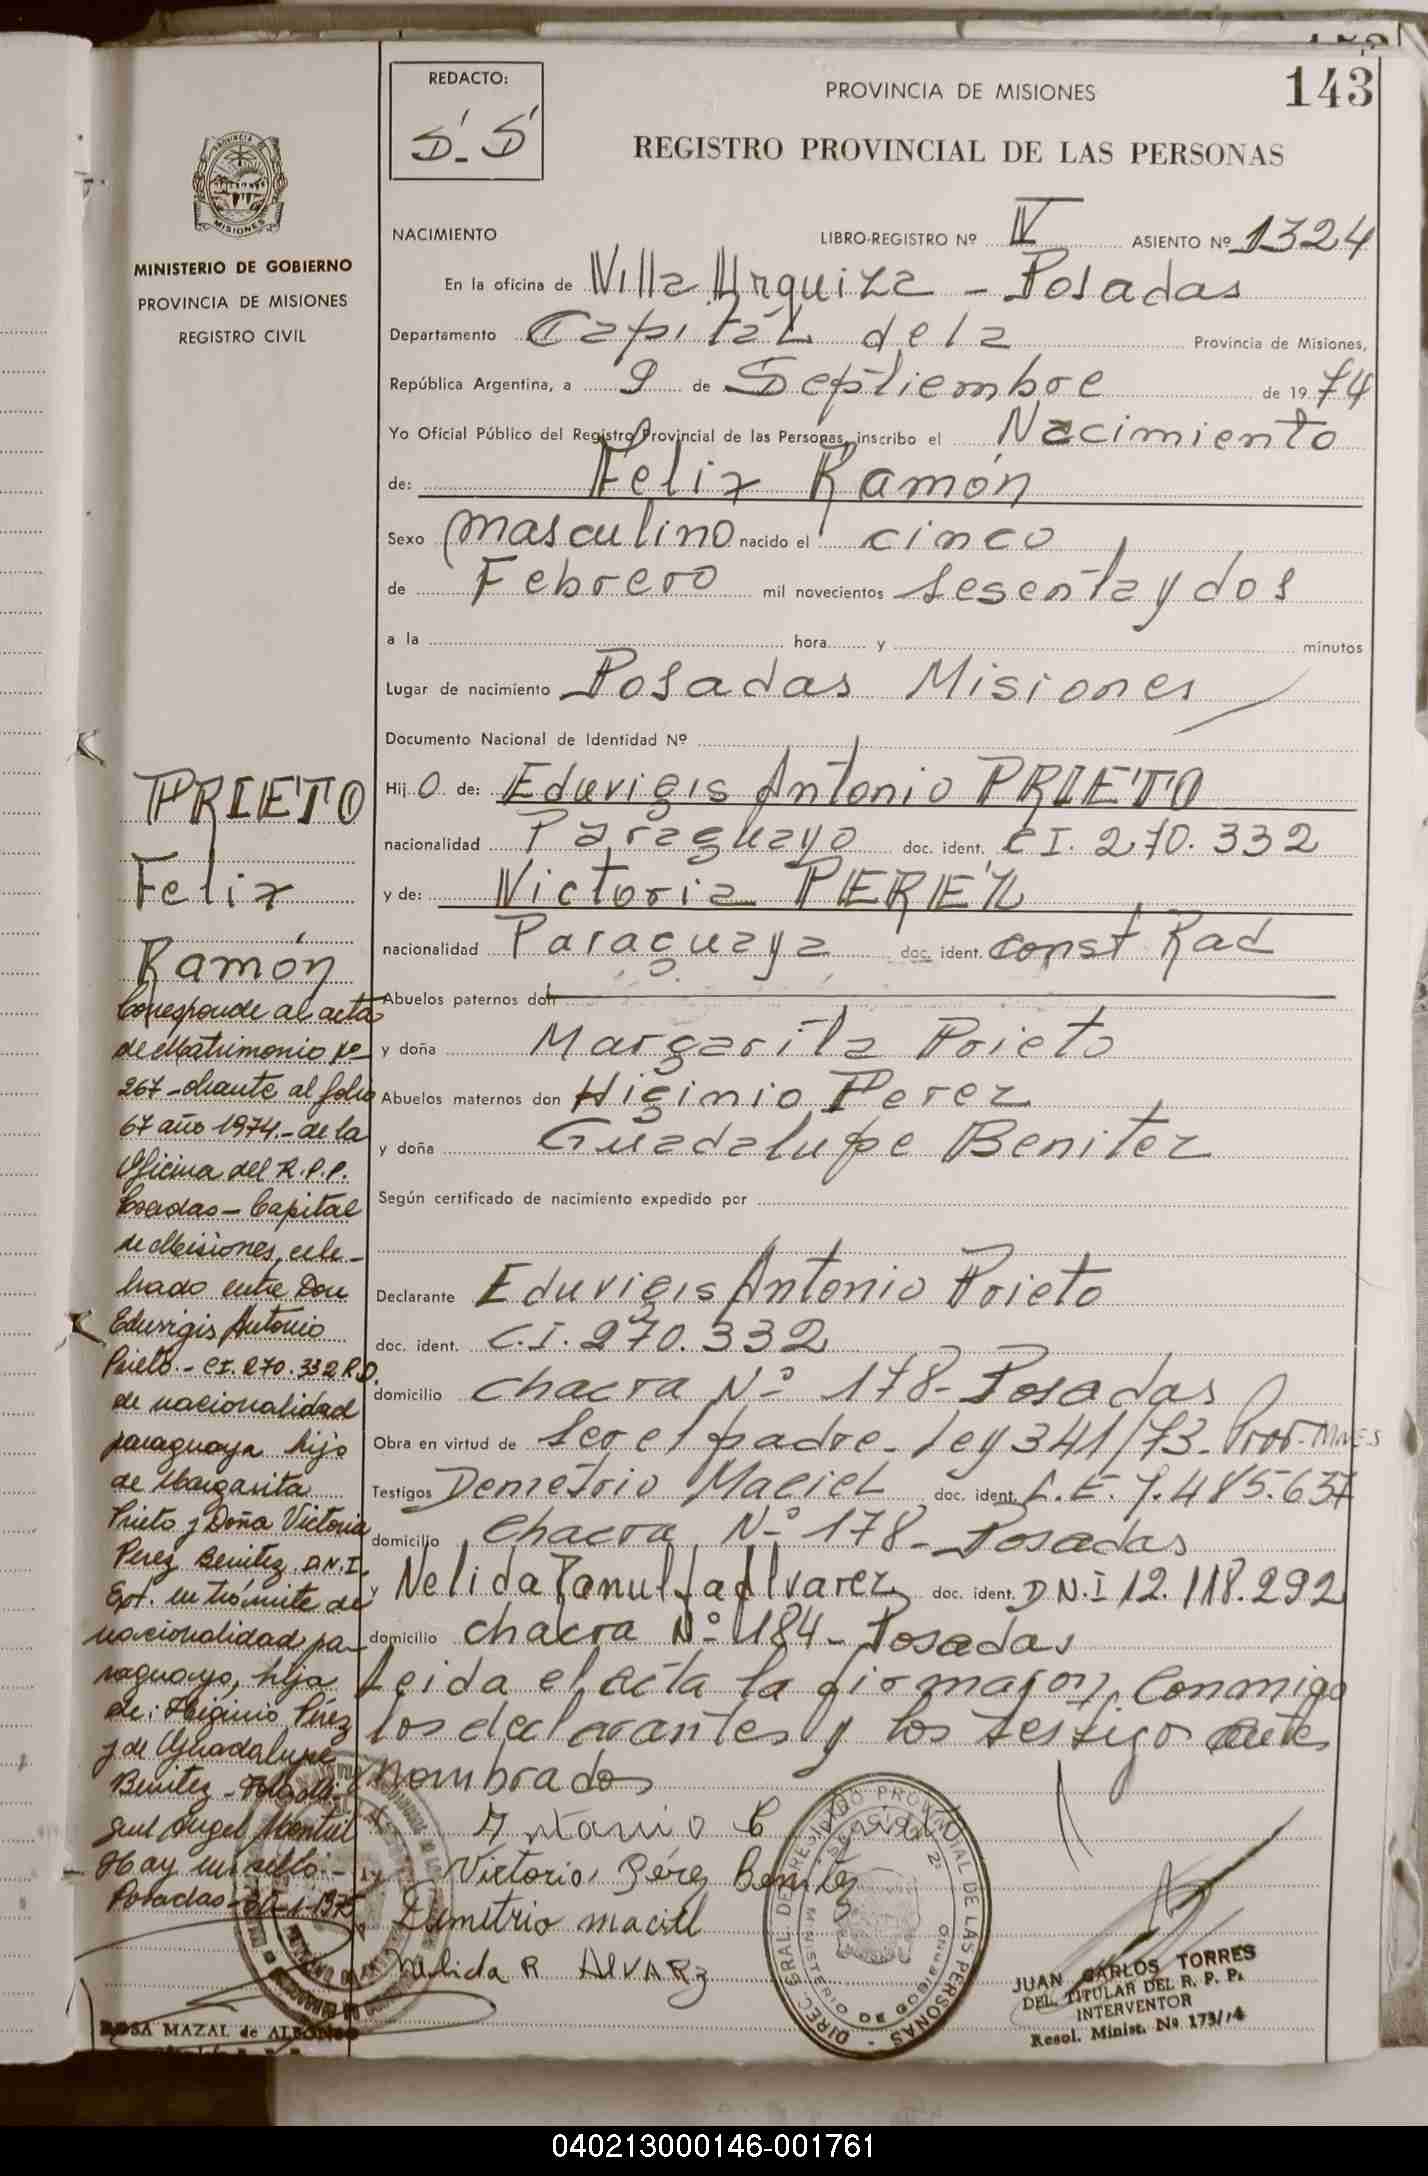 143
REDACTO:
S. S
PROVINCIA DE MISIONES
REGISTRO PROVINCIAL DE LAS PERSONAS
PROVINCIA
MISIONES
MINISTERIO DE GOBIERNO
PROVINCIA DE MISIONES
REGISTRO CIVIL
NACIMIENTO LIBRO-REGISTRO Nº IV ASIENTO Nº 1324
En la oficina de Villa Urquiza - Posadas
Departamento Capital de la Provincia de Misiones,
República Argentina, a 9 de Septiembre de 1974
Yo Oficial Público del Registro Provincial de las Personas, inscribo el Nacimiento
de: Felix Ramón
Sexo masculino nacido el cinco
de Febrero mil novecientos sesenta y dos
a la hora y minutos
Lugar de nacimiento Posadas Misiones
Documento Nacional de Identidad Nº
Hij o de: Eduvigis Antonio PRIETO
nacionalidad Paraguayo doc. ident. C I. 270.332
y de: Victoria PEREZ
nacionalidad Paraguaya doc. ident. const Rad
Abuelos paternos don
y doña Margarita Prieto
Abuelos maternos don Higinio Perez
y doña Guadalupe Benitez
Según certificado de nacimiento expedido por
Declarante Eduvigis Antonio Prieto
doc. ident. C.I. 270.332
domicilio chacra Nº 178 - Posadas
Obra en virtud de ser el padre - ley 341/73 -
Testigos Demetrio Maciel doc. ident. L.E. 7.485.637
domicilio chacra Nº 178 - Posadas
y Nelida Ranulfa Alvarez doc. ident. D N.I 12.118.292
domicilio chacra Nº 184 - Posadas
Leida el acta la firmaron conmigo
los declarantes y los testigos antes
nombrados
Antonio
Victoria Pérez Benitez
Demetrio maciel
Nelida R ALVARz
PRIETO
Felix
Ramón
Corresponde al acta
de Matrimonio Nº
267 - obrante al folio
67 año 1974.- de la
Oficina del R.P.P.
Posadas - Capital
de Misiones, cele-
brado entre Don
Eduvigis Antonio
Prieto.- CI. 270.332 R.P.
de nacionalidad
paraguaya hijo
de Margarita
Prieto y Doña Victoria
Perez Benitez D.N.I.
Ext. en trámite de
nacionalidad pa-
raguaya, hija
de: Higinio Pérez
y de Guadalupe
Benitez -
guel Angel Montiel
Hay un sello.-
Posadas 1975
ROSA MAZAL de ALFONSO
DIREC. GRAL. DE REGISTRO PROVINCIAL DE LAS PERSONAS
MINISTERIO DE GOBIERNO
JUAN CARLOS TORRES
DEL. TITULAR DEL R. P. P.
INTERVENTOR
Resol. Minist. Nº 173/74
040213000146-001761